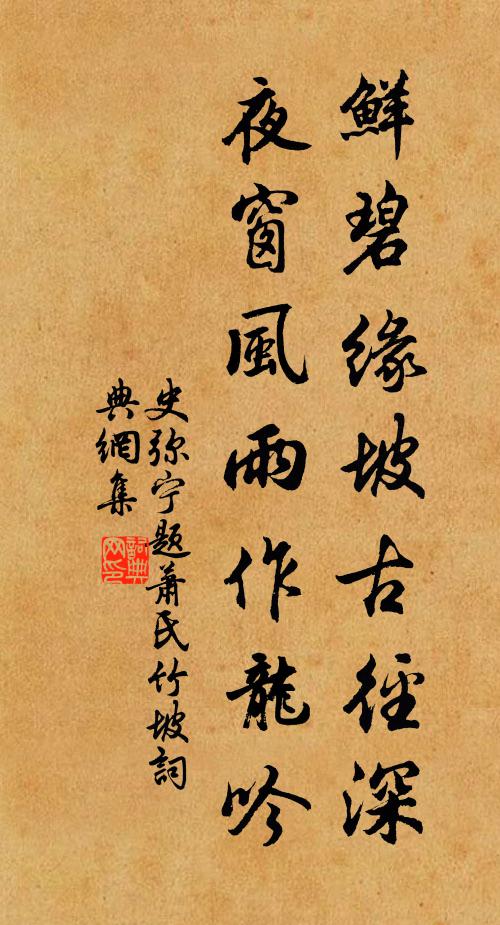 鮮碧緣坡古徑深
夜窗風雨作龍吟
史弥宁題蕭氏竹坡詞
典網集
詞典
网印